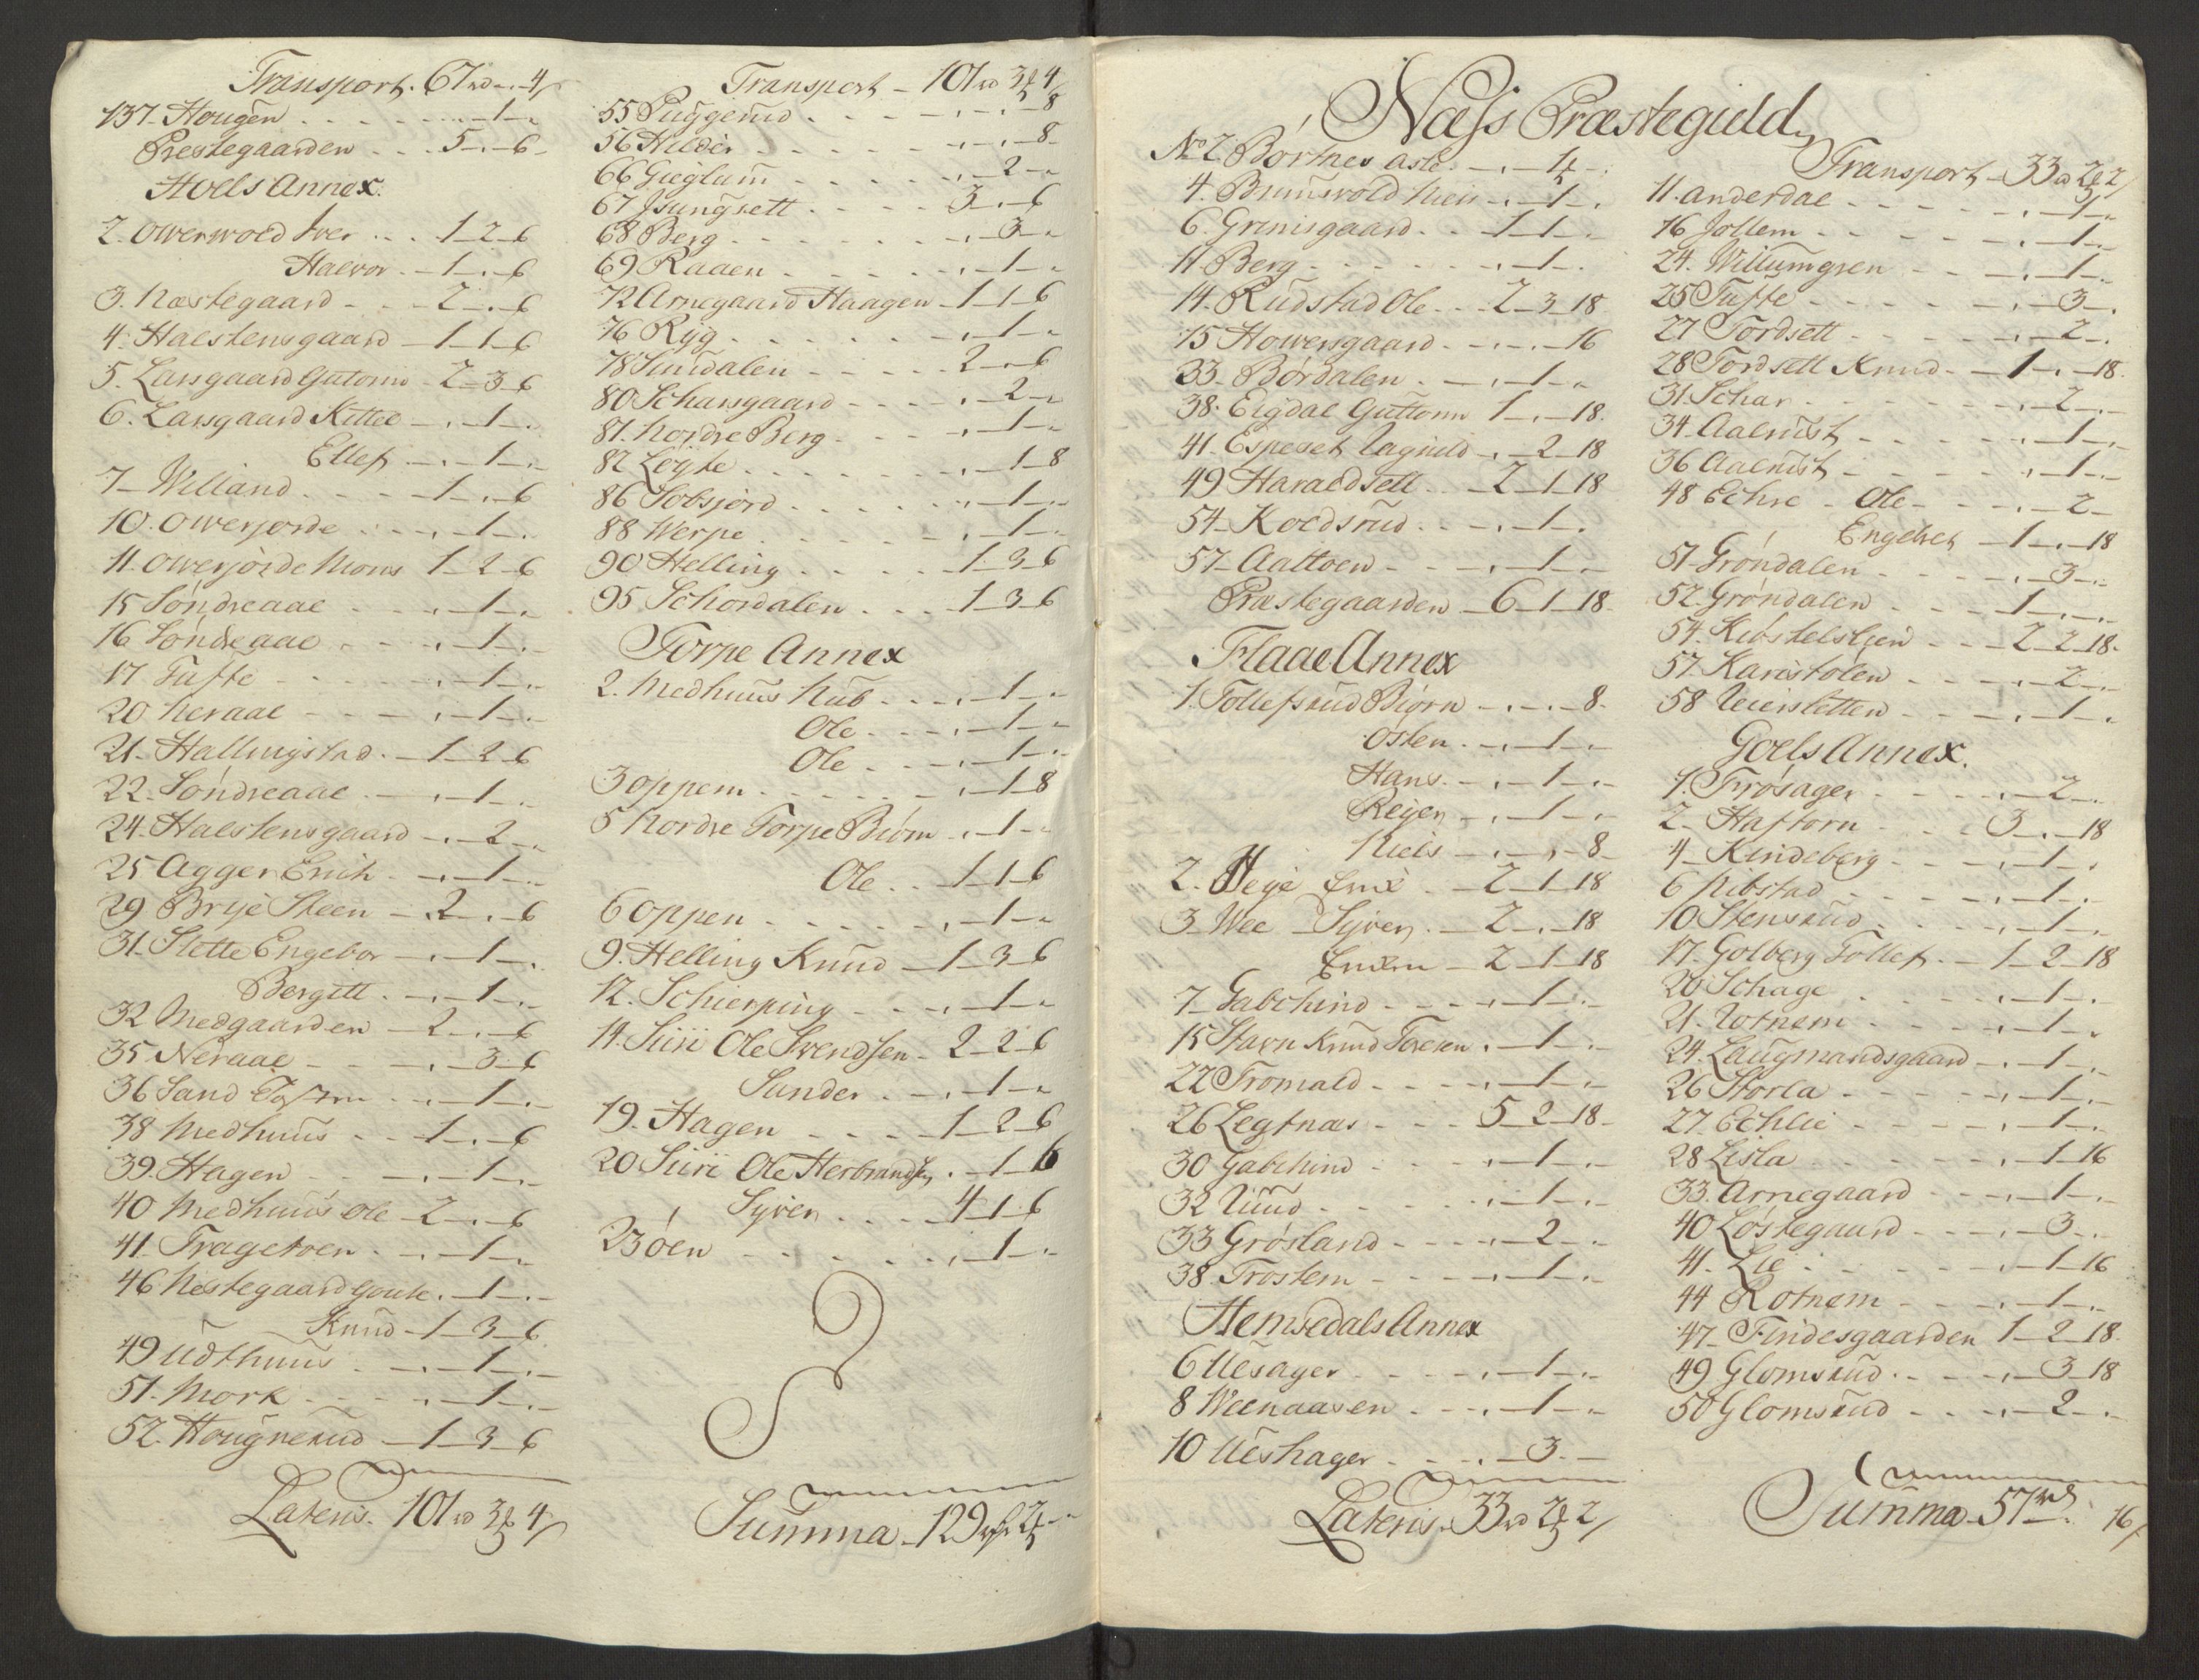 Transport. 67 rd - . 4 s
137. Hougen . . . - . - 1 - .
Prestegaarden . . . 5 - . - 6
Hoels Annex.
2. Owerwold Iver . . . 1 - 2 - 6
Halvor . - 1 - . - 6
3. Næstegaard . . . 2 - . - 6
4. Halstensgaard - 1 - 1 - 6
5. Larsgaard Gutorm - 2 - 3 - 6
6. Larsgaard Kittel - . - 1 - .
Ellef - . - 1 - .
7. Villand . . . 1 - . - 6
10. Owerjorde . . . - 1 - .
11. Owerjorde Mons 1 - 2 - 6
15 Søndreaal . . . - 1 - .
16 Søndreaal . . . - 1 - .
17 Tufte . . . - 1 - .
20 Neraal . . . - 1 - .
21. Hallingstad . - 1 - 2 - 6
22. Søndreaal . - . - 1 - .
24. Halstensgaard - . - 2 - .
25 Agger Erich . - . - 1 - .
29 Brye Steen - 2 - . - 6
31. Slette Engebor - . - 1 - .
Bergitt . - . - 1 - .
32 Medgaarden - 2 - . - 6
35 Neraal . . . - 3 - 6
36 Sand - . - 1 - .
38 Medhuus . . 1 - . - 6
39. Hagen . . . - 1 - .
40 Medhuus Ole - 2 - . - 6
41. Tragetoen . - . - 1 - .
46 Nestegaard Goule . - 1 - .
Knud - 1 - 3 - 6
49 Udthuus . - . - 1 - .
51. Mork . . . - 1 - .
52. Hougnerud - 1 - 3 - 6
Lateris. 101 rd 3 4 s
Transport - 101 rd 3 4 s
55 Puggerud . . . . - . - 8
56 Hilder . . . . - . - 8
66 Gieglum . . . . - 2 - .
67 Isungsett . . . . 3 - . - 6
68 Berg . . . . - 3 - .
69 Raaen . . . . - 1 - .
72 Arnegaard Haagen - 1 - 1 - 6
76 Ryg . . . . - 1 - .
78 Sundalen . . . . 2 - . - 6
80 Scharsgaard . . . . - 2 - .
81. Nordre Berg . . . - 1 - .
82 Løyte . . . . - 1 - 8
86 Sobsjord . . . . - 1 - .
88 Werpe . . . . - 1 - .
90 Helling . . . . 1 - 3 - 6
95 Schordalen . . . 1 - 3 - 6
Torpe Annex
2. Medhuus Nub . . . - 1 - .
Ole . . . - 1 - .
Ole . . . - 1 - .
3 Oppem . . . . - 1 - 8
5 Nordre Torpe Biørn - . - 1 - .
Ole . . 1 - 1 - 6
6 Oppen . . . . - 1 - .
9. Helling Knud - 1 - 3 - 6
12. Schierping . . . - 1 - .
14. Siiri Ole Svendsen - 2 - 2 - 6
Sander . . - 1 - .
19. Hagen . . . 1 - 2 - 6
20 Siire Ole Herbrandsen . - 1 - 6
Syver . . . 4 - 1 - 6
23 Øen . . . . - 1 - .
Summa - 129 rd 2
Næss Præstegield
No 2. Børtnes - . - 1 - .
4. Brunsvold Niels - . - 1 - .
6. Grimsgaard . . 1 - 1 - .
11. Berg . . . . - 1 - .
14. Rudstad Ole . . 2 - 3 - 18
15 Howersgaard . . - . - 16
33. Børdalen . - . - 1 - .
38. Eigdal Guttorm 1 - . - 18
41. Espeset Ragnild - . - 2 - 18
49 Haraldsett . . 2 - 1 - 18
54. Koldsrud . . . - 1 - .
57. Aattoen . . . - 1 - .
Præstegaarden - 6 - 1 - 18
Flaae Annex
1. Tollefsrud Biørn - . - . - 8
Østen . - . - 1 - .
Hans . - . - 1 - .
Reyer - . - 1 - .
Niels - . - . - 8
2. Heye - 2 - 1 - 18
3. Wee Syver . - 2 - . - 18
- 2 - 1 - 18
7. Gabchind . . . - 1 - .
15 Stavn Knud . - 1 - .
22 Tromald . . . - 1 - .
26 Legtnæs . . . 5 - 2 - 18
30 Gabchind . . . - 1 - .
32 Ruud . . . . - 1 - .
33 Grøsland . . . - 2 - .
38. Trostem . . . - 1 - .
Hemsedals Annex
6 Ulsager . . . - 1 - .
8 Weenaasen . . - 1 - .
10 Ulshager . . . - 3 - .
Lateris. 33 rd 2 2 s
Transport - 33 rd 2 2 s
11. Anderdal . . . - 1 - .
16 Jøllem . . . . - 1 - .
24. Willumgren . . - 1 - .
25 Tuffte . . . . - 3 - .
27 Tordsett . . . . - 2 - .
28 Tordsett Knud . - 1 - . - 18
31. Schar . . . . - 2 - .
34. Aalrust . . . . - 1 - .
36 Aalrust . . . . - 1 - .
48 Echre . Ole . . . - 2 -
Engebret - 1 - . - 18
51. Grøndalen . . . - 3 - .
52. Grøndalen . . . 1 - . - .
54. Kirstelslien . . . 2 - 2 - 18
57. Karistolen . . . - 2 - .
58 Ueiersletten . . . - 1 - .
Goels Annex.
1. Frøsager . . . - 2 - .
2. Haftorn . . . 3 - . - 18
4. Kindeberg . . . - 1 - .
6 Ribstad . . . - 1 - .
10 Stensrud . . . - 1 - .
17. Golberg Tollef . - 1 - 2 - 18
20 Schage . . . - 1 - .
21. Rotnem . . . - 1 - .
24. Laugmandsgaard - . - 1 - .
26 Storla . . . . - 1 - .
27. Echlie . . . . - 1 - .
28 Lisla . . . . - 1 - 16
33. Arnegaard . . . - 1 - .
40 Løstegaard . . . - 3 - .
41. Lie . . . . - 1 - 16
44 Rotnem . . . . - 1 - .
47. Findesgaarden 1 - 2 - 18
49 Glomsrud . . . - 3 - 18
50 Glomsrud . . . - 2 - .
Summa - 57 rd - . 16 s